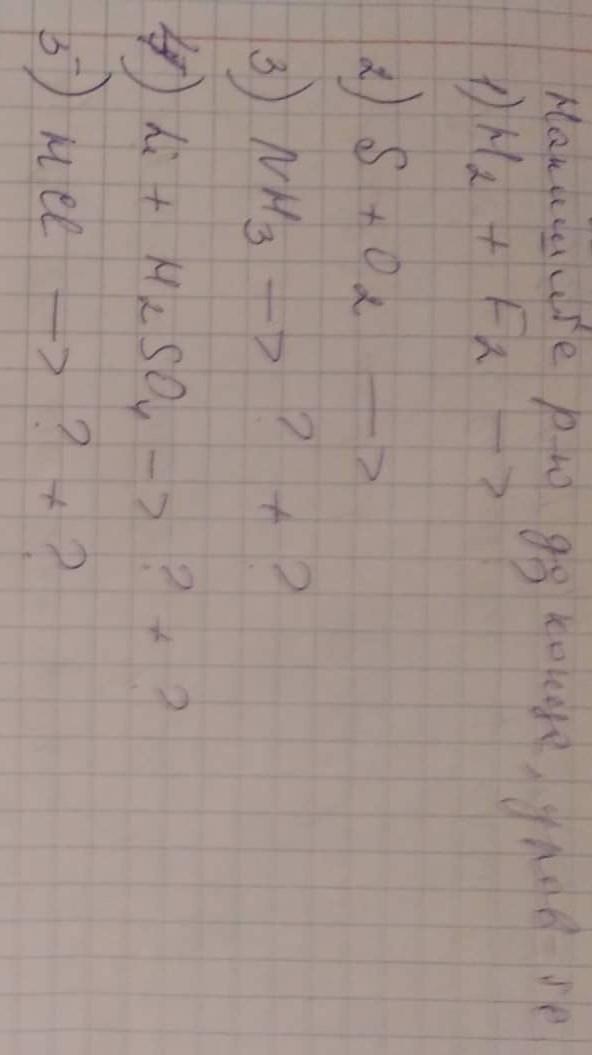 Напишите р-ю до конца, урав-те
1) H₂ + F₂ →
2) S + O₂ →
3) NH₃ → ? + ?
4) Li + H₂SO₄ → ? + ?
5) HCl → ? + ?